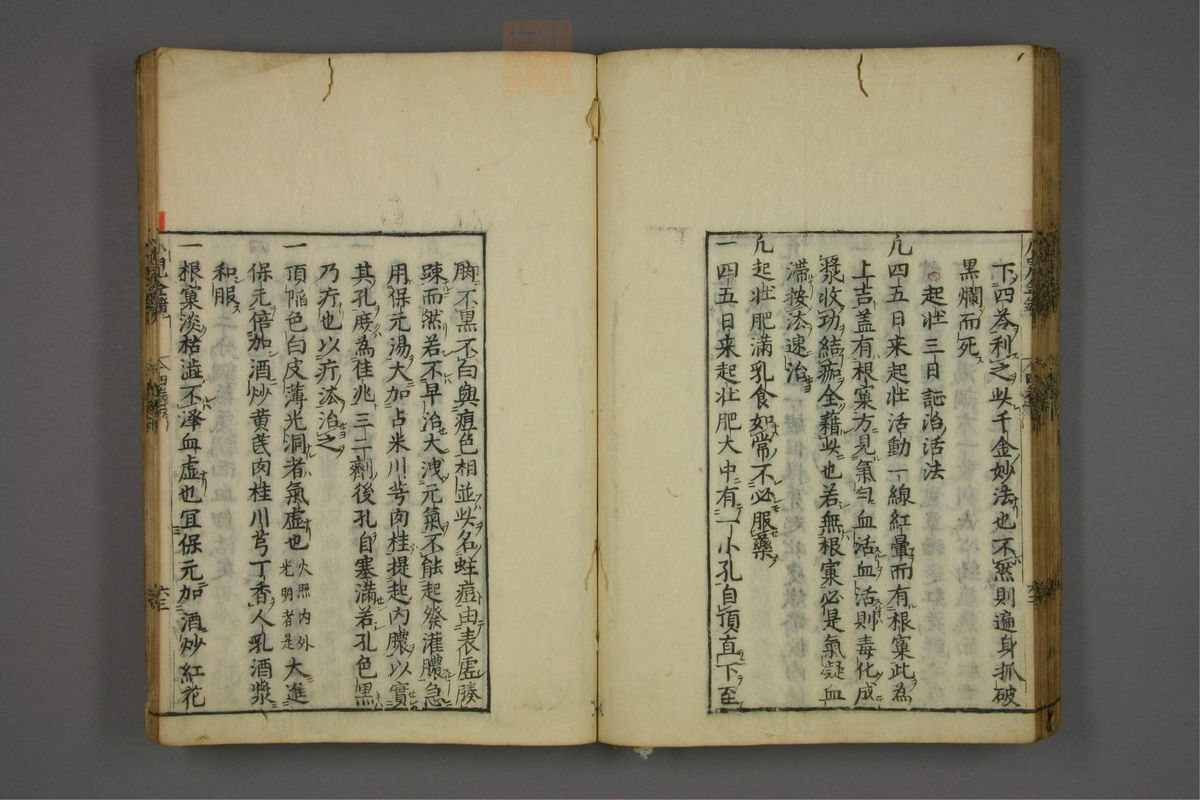 下四苓利之此千金妙法也不然則遍身抓破
黒爛而死
起壯三日証治活法
凢四五日来起壯活動一線紅暈而有根窠此為
上吉盖有根窠方見氣勻血活血活則毒化成
漿收功結痂全藉此也若無根窠必是氣凝血
滞按法速治
凢起壯肥滿乳食如常不必服藥
一四五日来起壯肥大中有一小孔自頂直下至
脚不黒不白與痘色相並此名蛀痘由表虚腠
踈而然若不早治大洩元氣不能起發灌膿急
用保元湯大加占米川芎肉桂提起内膿以實
其孔度為佳兆三二劑後孔自塞滿若孔色黒
乃疔也以疔法治之
一頂陥色白皮薄光洞者氣虚也火照内外光明者是大進
保元倍加酒炒黄茋肉桂川芎丁香人乳酒漿
和服
一根窠淡枯澁不澤血虚也宜保元加酒炒紅花